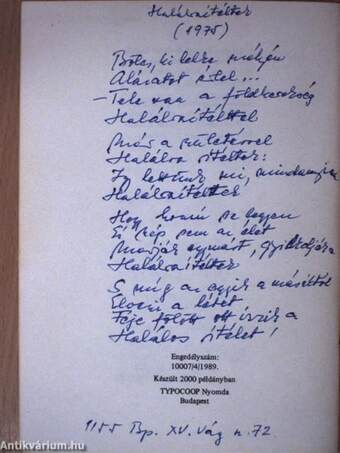 Halálraítéltek
(1975)
Bölcs, ki lelke mélyén
Alázatot érlel...
– Tele van a földkerekség
Halálraítélttel
Már a születéssel
Halálra ítéltek:
Így lettünk mi, mindannyian
Halálraítéltek
Hogy hosszú ne legyen
És szép sem az élet
Marják egymást, gyilkolják a
Halálraítéltek
S míg az egyik a másiktól
Elveszi a létet
Feje fölött ott érzik a
Halálos ítélet!
Engedélyszám:
10007/4/1989.
Készült 2000 példányban
TYPOCOOP Nyomda
Budapest
1155 Bp. XV. Vág u. 72
Antikvárium.hu